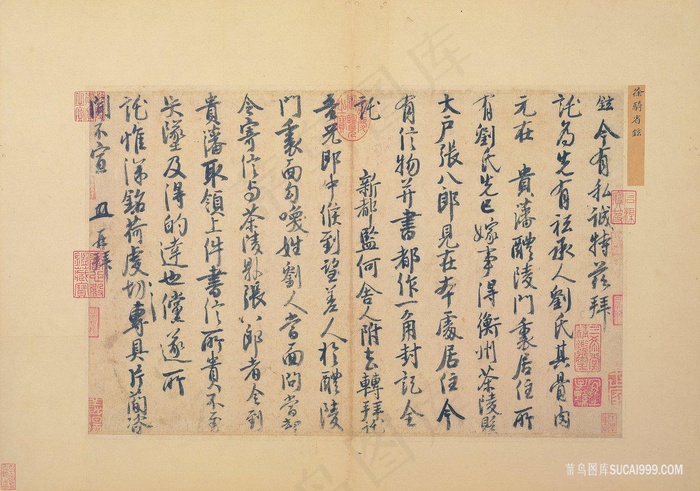 徐騎省鉉
鉉今有私誠特茲拜
託為先有祗承人劉氏其骨肉
元在 貴藩醴陵門裏居住所
有劉氏先已嫁事得衡州茶陵縣
大戶張八郎見在本處居住今
有信物并書都作一角封記全
託 新都監何舍人附去轉拜託
吾兄郎中候到望差人於醴陵
門裏面勾喚姓劉人當面問當却
令寄信与茶陵縣張八郎者令到
貴藩取領上件書信所貴不至
失墜及得的達也儻遂所
託惟深銘荷虔切專具片簡諮
聞不宣 再拜
菜鸟图库SUCAI999.COM